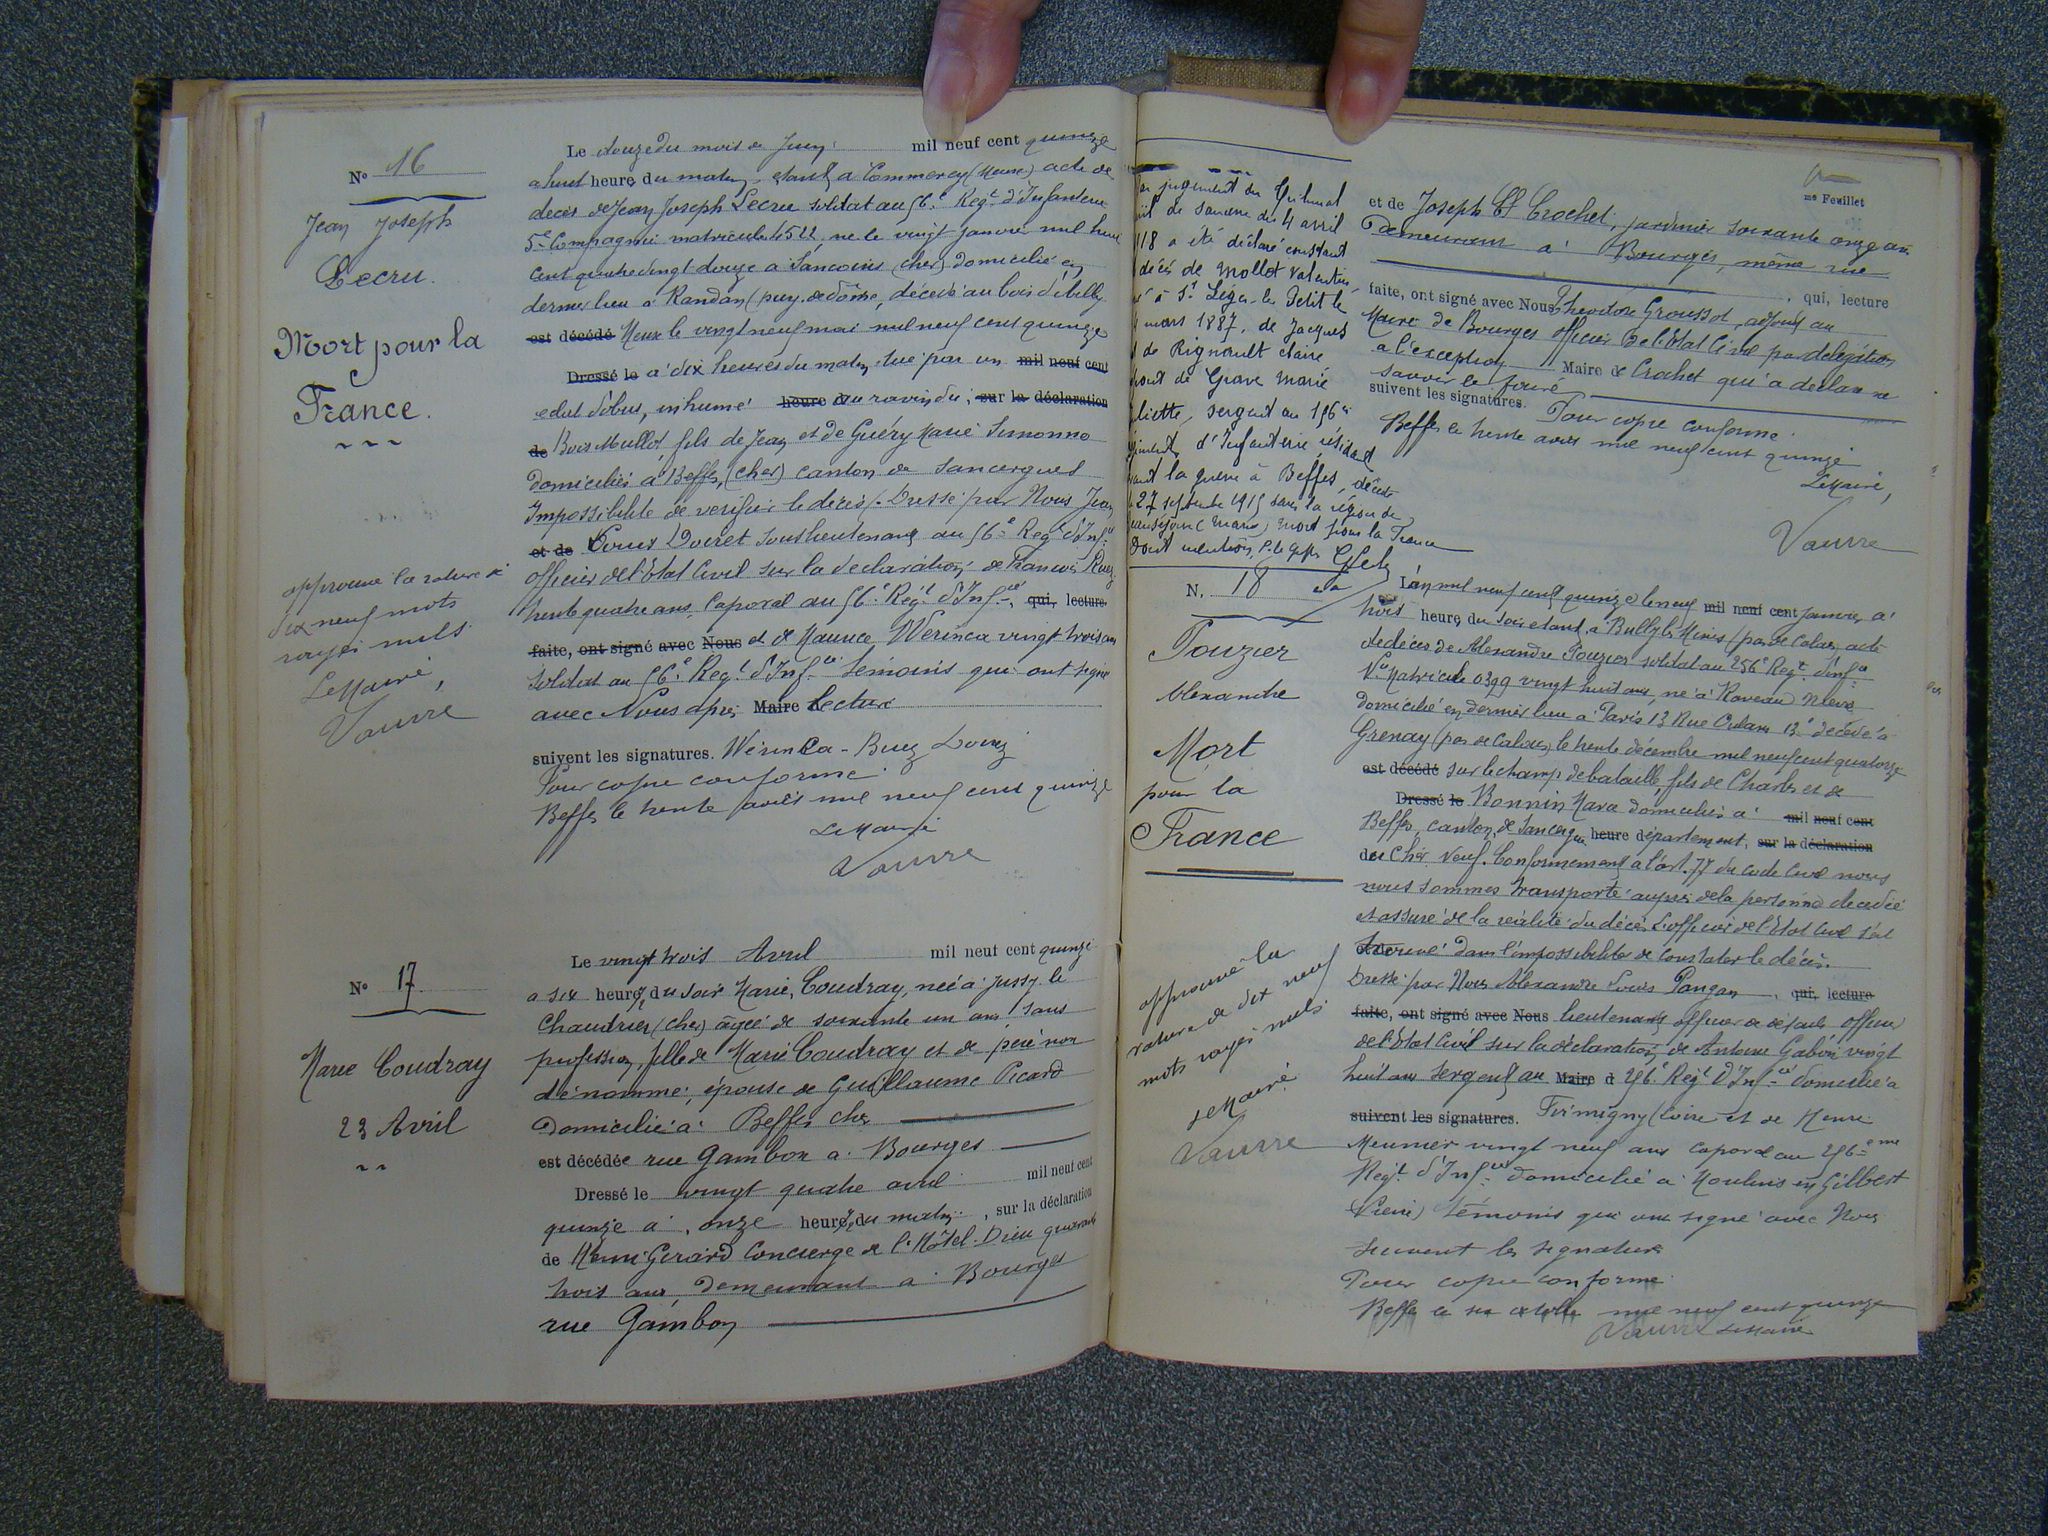 No 16
Jean Joseph
Lecru.
Mort pour la
France.
approuvé la rature de
dix neuf mots
rayés nuls
Le Maire,
Vauvre
Le douze du mois de Juin mil neuf cent quinze
a huit heure, du matin, étant à Commercy (Meuse) acte de
décès de Jean Joseph Lecru soldat au 56e Regt d'Infanterie
5e Compagnie matricule 4522, né le vingt janvier mil huit
cent quatre vingt douze à Sancoins (cher) domicilié en
dernier lieu à Randan (puy-de-dôme, décédé au bois d'ailly
est décédé Meuse le vingt neuf mai mil neuf cent quinze
Dressé le à dix heures du matin, tué par un mil neuf cent
éclat d'obus, inhumé heure au ravin du, sur la déclaration
de Bois Mullot, fils de Jean et de Guéry Marie Simonne
domiciliés à Beffes, (cher) canton de Sancergues
Impossibilité de vérifier le décès. Dressé par Nous Jean
et de Louis Doiret Sous lieutenant au 56e Regt d'Infie
officier de l'Etat Civil sur la déclaration de Francois
trente quatre ans, Caporal au 56e Regt d'Infie, qui, lecture
faite, ont signé avec Nous et de Maurice Werinca vingt trois ans
soldat au 56e Regt d'Infie témoins qui ont signé
avec Nous après Maire Lecture
suivent les signatures. Werinca -
Pour copie conforme
Beffes le trente mil neuf cent quinze
Le Maire
Vauvre
No 17
Marie Coudray
23 Avril
Le vingt trois Avril mil neuf cent quinze
a six heures, du soir Marie, Coudray, née à Jussy le
Chaudrier (cher) âgée de soixante un ans, sans
profession, fille de Marie Coudray et de père non
dénommé, épouse de Guillaume Picard
domiciliée à Beffes cher
est décédée rue Gambon a Bourges
Dressé le vingt quatre avril mil neuf cent
quinze à onze heures, du matin, sur la déclaration
de Henri Gérard Concierge de l'Hôtel-Dieu quarante
trois ans, demeurant a Bourges
rue Gambon
jugement du Tribunal
de Sancerre du 4 avril
118 a été déclaré constant
décès de Mollot Valentin,
à St Léger le Petit le
mars 1887, de Jacques
de Rignault claire
de Grave Marie
liette, sergent au 156e
d'Infanterie, résidant
la guerre à Beffes, décédé
27 septembre 1915 dans la région de
(Marne) Mort pour la France
Dont mention,
me Feuillet
et de Joseph Crochet, jardinier soixante onze ans
demeurant à Bourges, même rue
, qui, lecture
faite, ont signé avec Nous Théodore Groussot, adjoint au
Maire de Bourges officier de l'Etat Civil par délégation
a l'exception Maire de Crochet qui a déclaré ne
savoir le faire
suivent les signatures. Pour copie conforme
Beffes le trente mil neuf cent quinze
Le Maire,
Vauvre
N. 18
Pouzier
Alexandre
Mort
pour la
France
approuvé la
rature de dix neuf
mots rayés nuls
Le Maire
Vauvre
L'an mil neuf cent quinze le neuf mil neuf cent janvier, à
trois heure, du soir étant, à Bully les Mines (pas de Calais) acte
de décès de Alexandre Pouzier soldat au 256e Regt d'Infie
No Matricule 0399 vingt huit ans, né à Raveau Nièvre
domicilié en dernier lieu à Paris, 13 Rue 13e décédé à
Grenay (pas de Calais) le trente décembre mil neuf cent quatorze
est décédé sur le champ de bataille, fils de Charles et de
Dressé le Bonnin Marie domiciliés à mil neuf cent
Beffes, canton, de Sancergues heure département, sur la déclaration
de du Cher Veuf. Conformement à l'art. 77 du code Civil nous
nous sommes transporté auprès de la personne décédée
et assuré de la réalité du décès L'officier de l'Etat Civil s'est
et de trouvé dans l'impossibilité de constater le décès.
Dressé par Nous Alexandre Louis Pangon, qui, lecture
faite, ont signé avec Nous lieutenant officier de détails officier
de l'Etat Civil sur la déclaration de Antoine Gabin vingt
huit ans sergent au Maire d 256e Regt d'Infie domicilié à
suivent les signatures. Firmigny (Loire et de Henri
Meunier vingt neuf ans caporal au 256eme
Regt d'Infie domicilié à Moulins en Gilbert
(Nièvre) témoins qui ont signé avec Nous
suivent les signatures
Pour copie conforme
Beffes le six octobre mil neuf cent quinze
Vauvre Le Maire